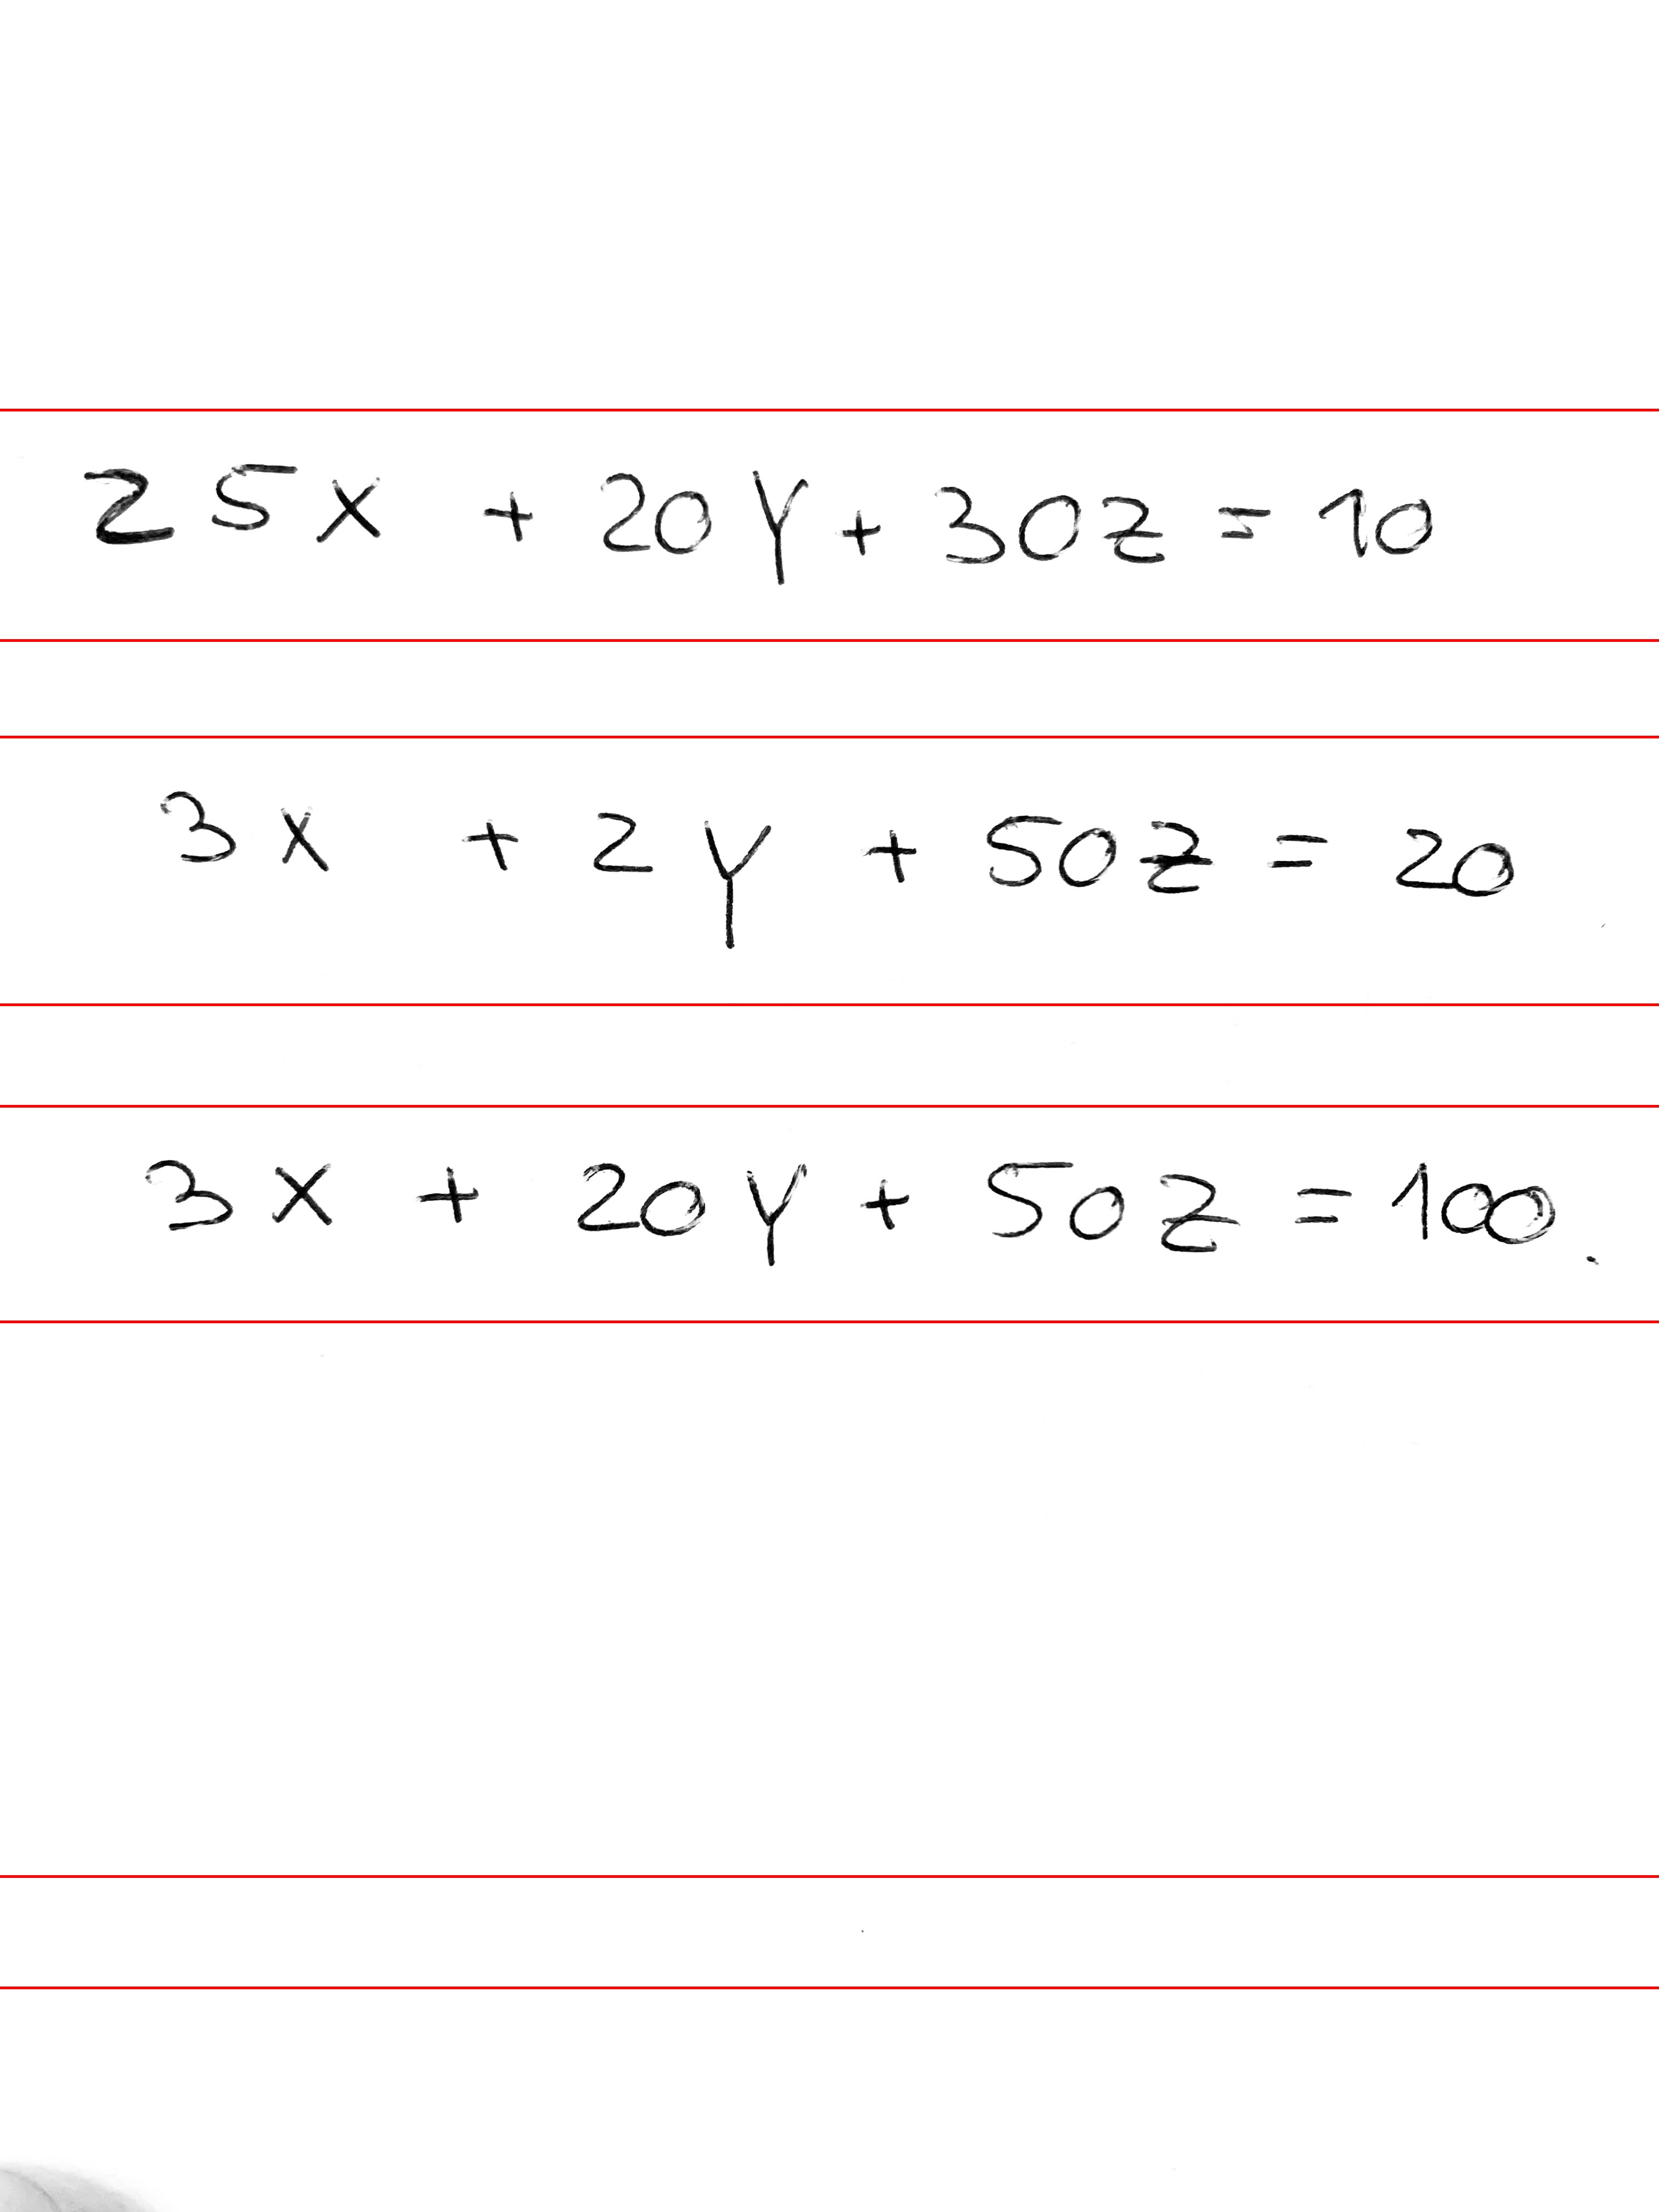 25x + 20y + 30z = 10
3x + 2y + 50z = 20
3x + 20y + 50z = 100.